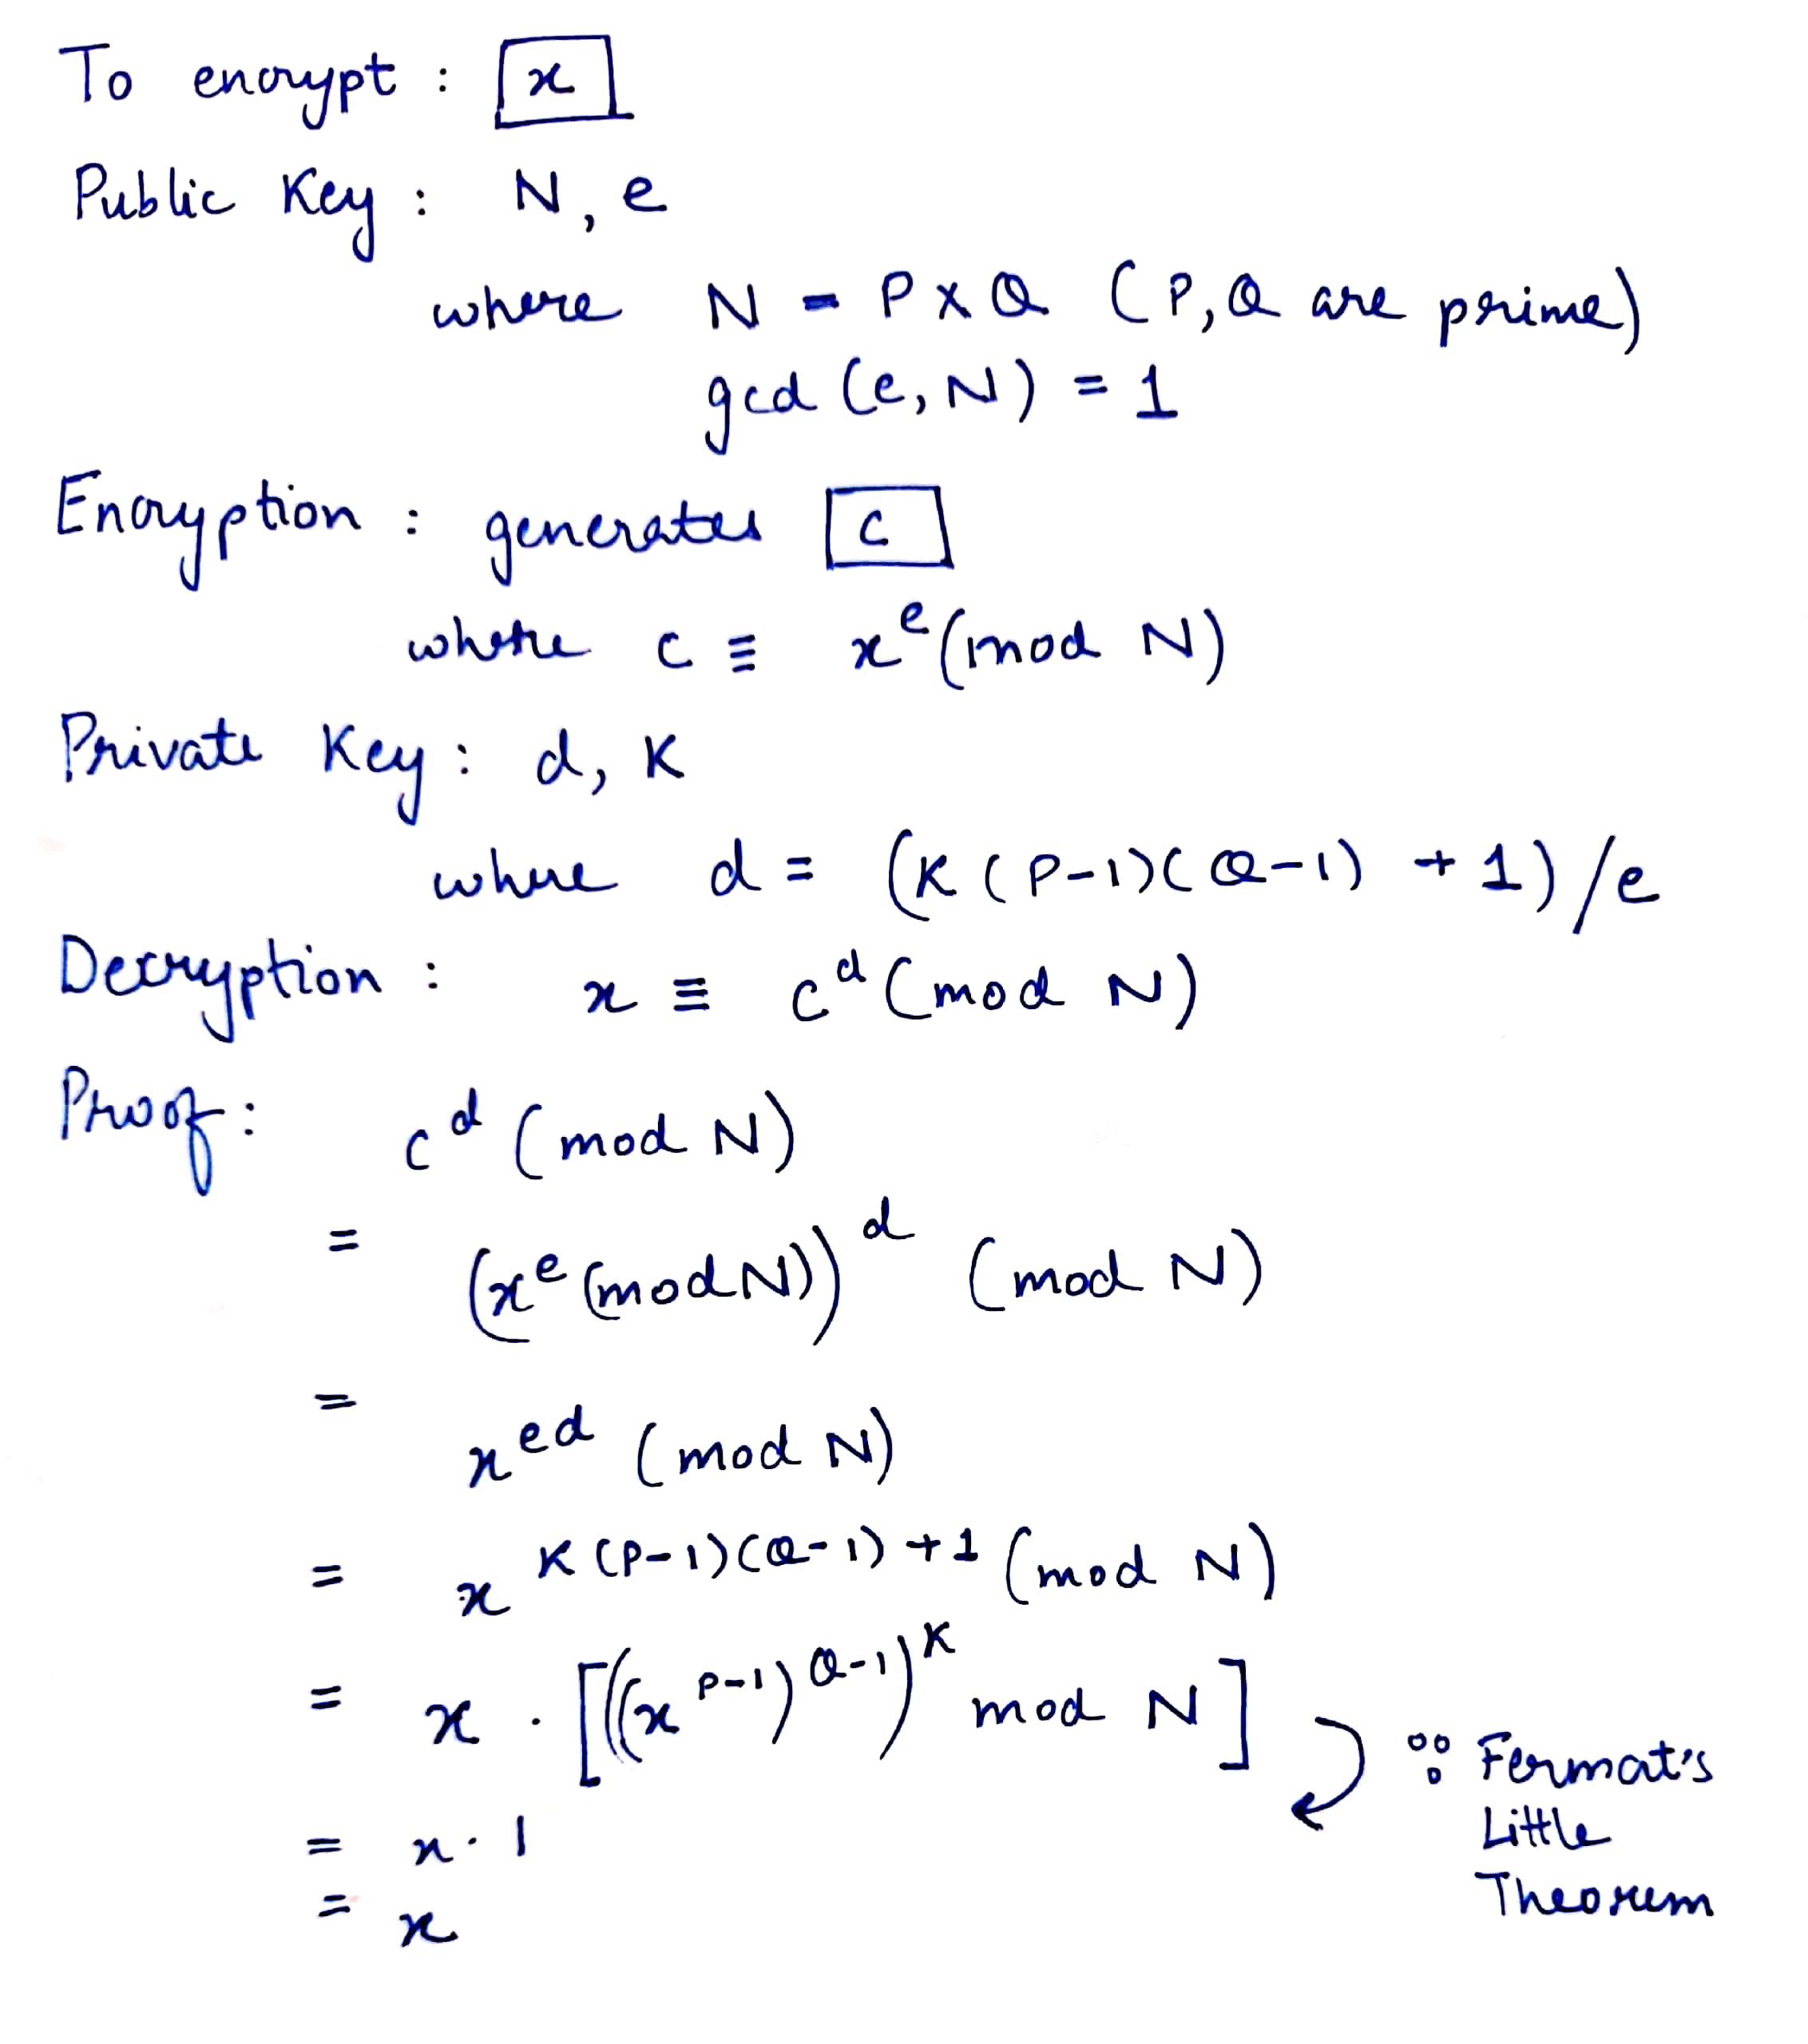 To encrypt : x
Public Key : N, e
where N = P x Q (P, Q are prime)
gcd (e, N) = 1
Encryption : generates c
where c ≡ x^e (mod N)
Private Key : d, K
where d = (K (P-1)(Q-1) + 1) / e
Decryption : x ≡ c^d (mod N)
Proof : c^d (mod N)
= (x^e (mod N))^d (mod N)
= x^ed (mod N)
= x^K(P-1)(Q-1)+1 (mod N)
= x . [((x^P-1)^Q-1)^K mod N]
∵ Fermat's
Little
Theorem
= x . 1
= x